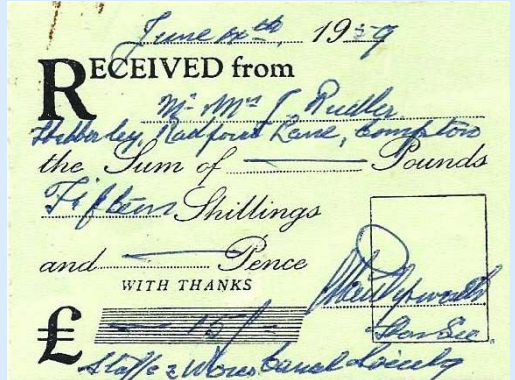 June 1959
RECEIVED from
Mr Mrs J. Rudler
Hibberley, Radford Lane, Compton
the Sum of — Pounds
Fifteen Shillings
and — Pence
WITH THANKS
£ — 15/-
Hon Sec.
Staffs & Worcs Canal Society